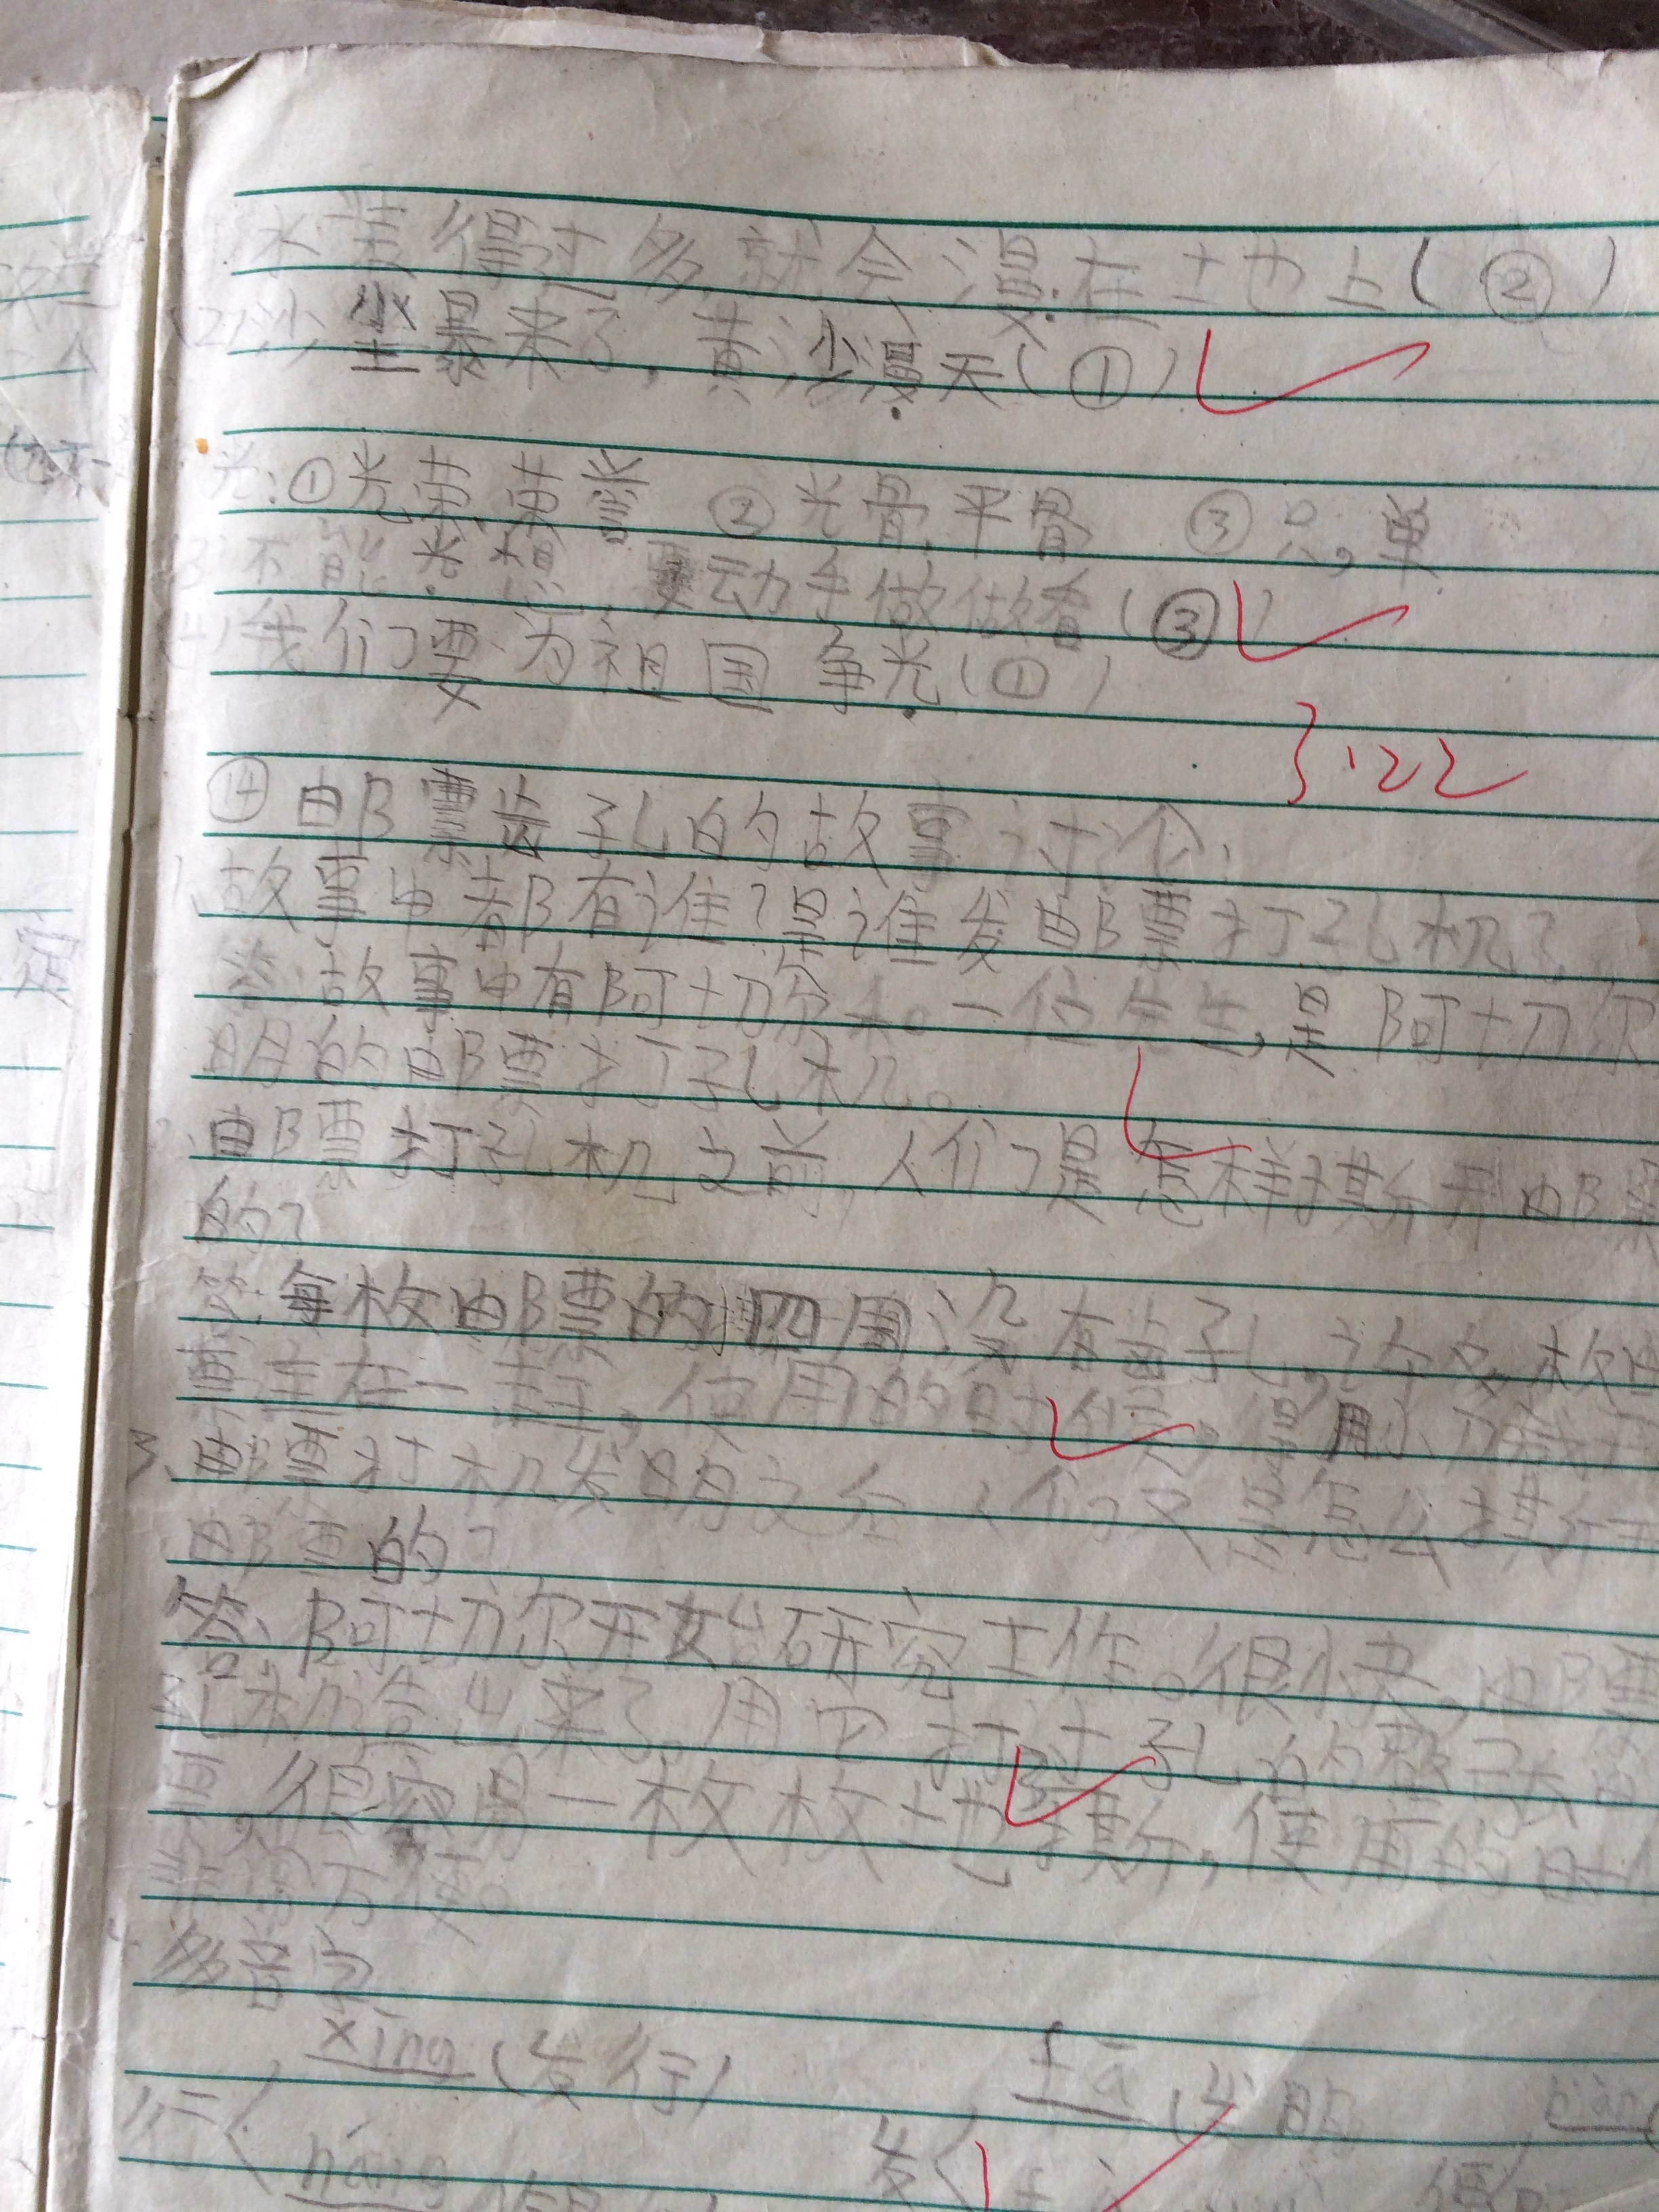 水装得过多就会漫在土地上(②)
(2)沙尘暴来了,黄沙漫天(①)
光:①光荣,荣誉 ②光骨,平骨 ③只,单
(3)不能光想,要动手做做看(③)
(4)我们要为祖国争光(①)
3.22
⑭邮票齿孔的故事讨论:
1、故事中都有谁?是谁发邮票打孔机?
答:故事中有阿切尔和一位先生,是阿切尔
明的邮票打孔机。
邮票打孔机之前,人们是怎样撕开邮票
的?
答:每枚邮票的四周没有齿孔,许多枚邮
票连在一起,使用的时候,得用小刀裁开
3、邮票打机发明之后人们又是怎么撕开
邮票的?
答:阿切尔开始研究工作。很快,邮票
孔机造出来了。用它打过孔的整张邮
票,很容易一枚枚地撕开,使用的时候
非常方便。
多音字
xíng(发行) fā(发明 biàn(
行 发 便
háng